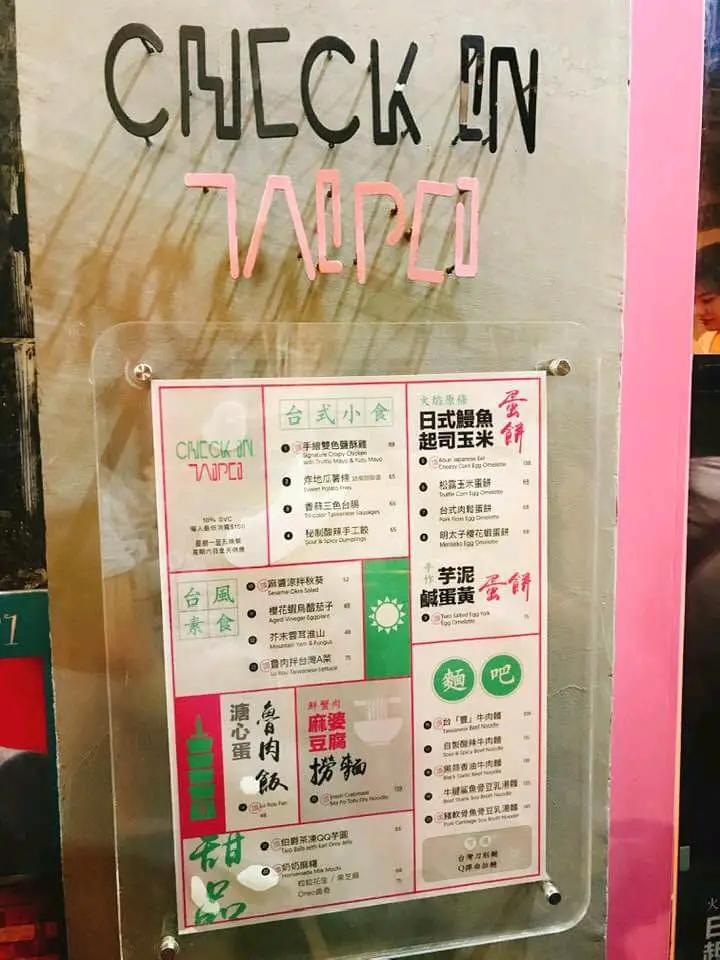 CHECK IN
TAIPEI
CHECK IN
TAIPEI
10% SVC
台式小食
手繪雙色鹽酥雞
Signature Crispy Chicken
with Truffle Mayo & Yuzu Mayo
炸地瓜薯條
65
Sweet Potato Fries
香蒜三色台腸
65
Tri-color Taiwanese Sausages
秘制酸辣手工餃
65
Sour & Spicy Dumplings
火焰原條
日式鰻魚
起司玉米
蛋餅
Aburi Japanese Eel
Cheesy Corn Egg Omelette
松露玉米蛋餅
68
Truffle Corn Egg Omelette
台式肉鬆蛋餅
68
Pork Floss Egg Omelette
明太子櫻花蝦蛋餅
68
Mentaiko Egg Omelette
手作
芋泥
鹹蛋黃
蛋餅
Taro Salted Egg Yolk
Egg Omelette
台風
素食
麻醬涼拌秋葵
52
Sesame Okra Salad
櫻花蝦烏醋茄子
Aged Vinegar Eggplant
芥末雲耳淮山
Mountain Yam & Fungus
魯肉拌台灣A菜
75
Lu Rou Taiwanese Lettuce
溏心蛋
魯肉飯
Lu Rou Fan
鮮蟹肉
麻婆
豆腐
撈麵
Fresh Crabmeat
Ma Po Tofu Dry Noodle
麵吧
台「豐」牛肉麵
Taiwanese Beef Noodle
自製酸辣牛肉麵
Sour & Spicy Beef Noodle
黑蒜香油牛肉麵
Black Garlic Beef Noodle
牛腱鯊魚骨豆乳湯麵
Beef Shank Soy Broth Noodle
豬軟骨魚骨豆乳湯麵
Pork Cartilage Soy Broth Noodle
台灣刀削麵
甜品
伯爵茶凍QQ芋圓
Taro Balls with Earl Grey Jelly
奶奶麻糬
Homemade Milk Mochi
粒粒花生 / 黑芝麻